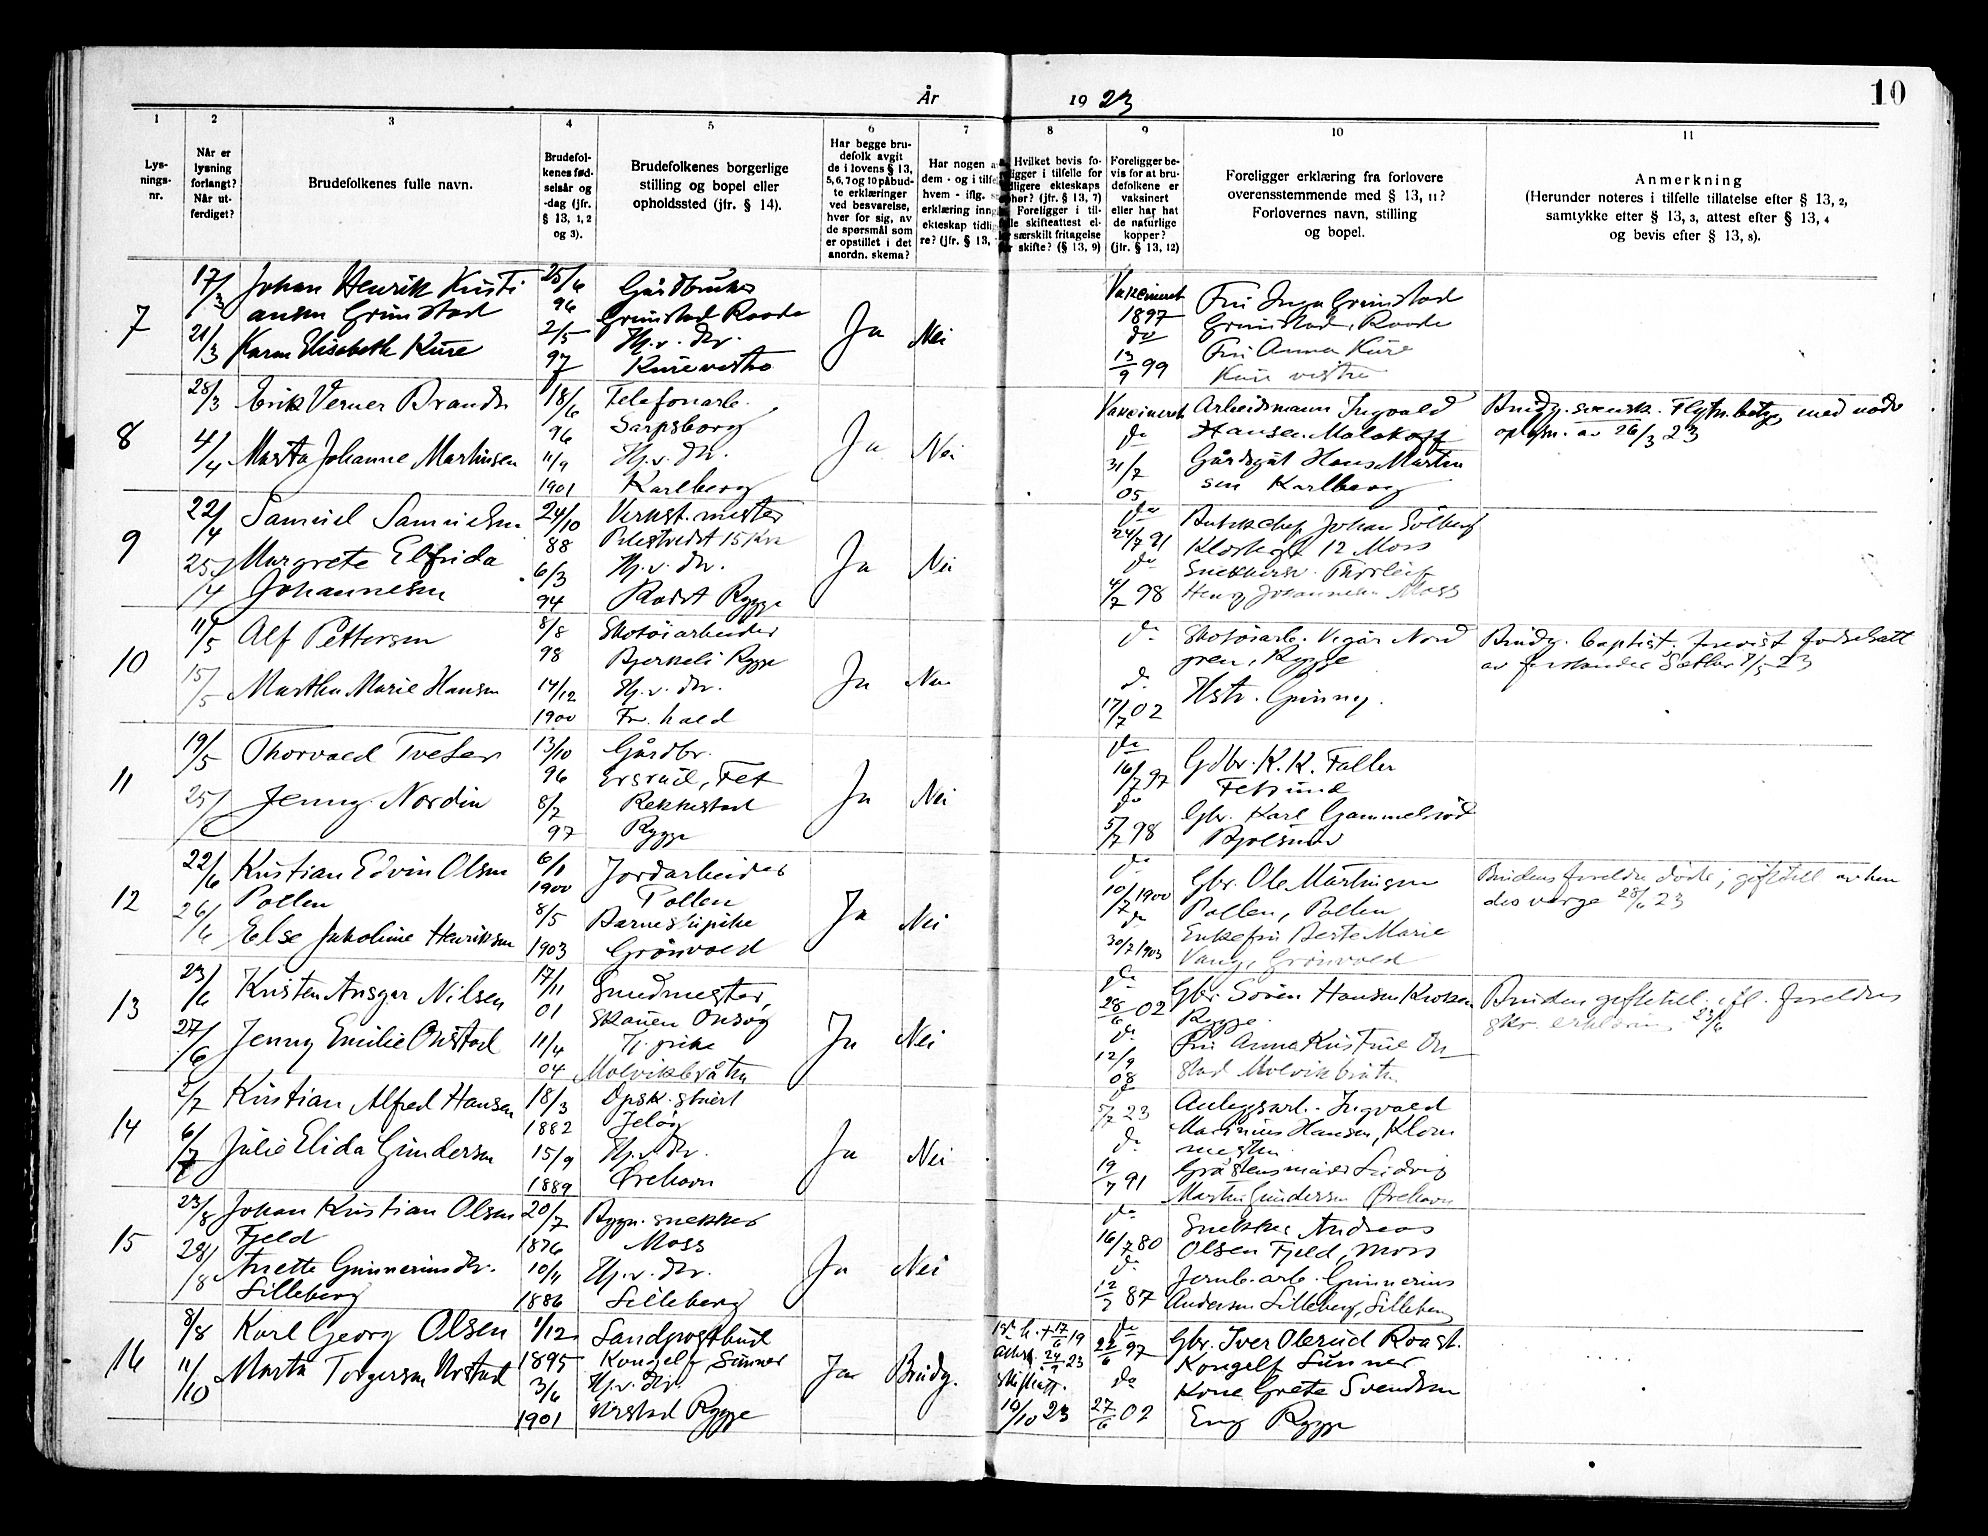 År 1923
10
1 2 3 4 5 6 7 8 9 10 11
Lys-
nings-
nr.
Når er
lysning
forlangt?
Når ut-
ferdiget?
Brudefolkenes fulle navn.
Brudefol-
kenes fød-
selsår og
-dag (jfr.
§ 13, 1, 2
og 3).
Brudefolkenes borgerlige
stilling og bopel eller
opholdssted (jfr. § 14).
Har begge bru-
defolk avgit
de i lovens § 13,
5, 6, 7 og 10 påbud-
te erklæringer
ved besvarelse,
hver for sig, av
de spørsmål som
er opstillet i det
anordn. skema?
Har nogen
dem - og i
hvem - iflg.
erklæring
ekteskap
re? (jfr. § 13,
Hvilket bevis fo-
ligger i tilfelle for
tidligere ekteskaps
ophør? (jfr. § 13, 7)
Foreligger i til-
felle skifteattest el-
ler særskilt fritagelse
for skifte? (§ 13, 9)
Foreligger be-
vis for at bru-
defolkene er
vaksinert
eller har hat
de naturlige
kopper?
(jfr. § 13, 12)
Foreligger erklæring fra forlovere
overensstemmende med § 13, 11?
Forlovernes navn, stilling
og bopel.
Anmerkning
(Herunder noteres i tilfelle tillatelse efter § 13, 2,
samtykke etter § 13, 3, attest efter § 13, 4
og bevis efter § 13, 8).
7
17/3
21/3
Johan Henrik Kristi
ansen Grimstad
Karen Elisabeth Kure
25/6
96
2/5
97
Gårdbruker
Grimstad Raade
Hj.v. dtr.
Kure vestre
Ja
Nei
Vakcineret
1897
do
13/9 99
Fru Inga Grimstad
Grimstad, Raade
Fru Anna Kure
Kure vestre
8
28/3
4/4
Erik Verner Brandt
Marta Johanne Martinsen
18/6
96
11/9
1901
Telefonarb.
Sarpsborg
Hj.v. dtr.
Karlberg
Ja
Nei
Vakcineret
do
31/7
05
Arbeidsmann Ingvald
Hansen Malakoff
Gårdsgut Hans Martin
sen Karlberg
Brudg. svensk. Flytn.betyg med nødv
oplysn. av 26/3 23
9
22/4
25/4
Samuel Samuelsen
Margrete Elfrida
Johannesen
24/10
88
6/3
94
Verkst. mester
Pilestrædet 15
Hj.v. dtr.
Rygge
Ja
Nei
do
24/7 91
do
4/7 98
Johan Solberg
Klostergt 12 Moss
Thorleif
Henry Johannesen Moss
10
11/5
15/5
Alf Pettersen
Martha Marie Hansen
8/8
98
14/12
1900
Skotøiarbeider
Bjerkeli Rygge
Hj.v. dtr.
Fr. hald
Ja
Nei
do
do
17/7 02
Skotøiarb. Vigar Nord
gren, Rygge
Hstr. Gunny.
Brudg. baptist. forevist fødselsatt
av forstander Sæther 7/5 23
11
19/5
25/
Thorvald Tveter
Jenny Nordin
13/10
96
8/7
97
Gårdbr.
Ersrud, Fet
Rekkestad
Rygge
Ja
Nei
do
16/7 97
do
5/7 98
Gdbr. K. K. Faller
Fetsund
Gbr. Karl Gammelsrød
12
22/6
26/6
Kristian Edvin Olsen
Pollen
Else Jakoline Henriksen
6/1
1900
8/5
1903
Jordarbeider
Pollen
Barnepike
Grønvold
Ja
Nei
do
10/7 1900
do
30/7 1903
Gbr. Ole Martinsen
Pollen, Pollen
Enkefru Berte Marie
Vang, Grønvold
Brudens foreldre døde; giftetill. av hen
des verge 28/6 23
13
23/6
27/6
Kristen Ansgar Nilsen
Jenny Emilie Onstad
17/11
01
11/4
04
Smedmester,
Skauen Onsøy
Tj. pike
Molvikbråten
Ja
Nei
do
28/6 02
do
12/9
08
Gbr. Søren Hansen Kroken
Rygge.
Fru Anna Kristine On
stad Molvikbråten
Bruden giftetill. ifl. foreldres
skr. erklæring 23/6
14
2/7
6/7
Kristian Alfred Hansen
Julie Elida Gundersen
18/3
1882
15/9
1889
Dpsk. stuert
Jeløy
Hj.v. dtr.
Ørehavn
Ja
Nei
do
5/7 23
do
19/7 91
Anlegsarb. Ingvald
Marinius Hansen, Klom
mesten
Gråstensmurer Ludvig
Martin Gundersen Ørehavn
15
23/8
28/8
Johan Kristian Olsen
Fjeld
Anette Gunneriusdtr.
Silleberg
20/7
1876
10/4
1886
Bygn. snekker
Moss
Hj.v. dtr.
Silleberg
Ja
Nei
do
16/7 80
do
12/7 87
Snekker Andreas
Olsen Fjeld, Moss
Jernb. arb. Gunnerius
Andersen Silleberg, Silleberg
16
8/8
11/10
Karl Georg Olsen
Marta Torgersen Urstad
1/12
1895
3/6
1901
Landpostbud
Kongelf Sunner
Hj.v. dtr.
Urstad Rygge
Ja
Brudg.
1ste h. + 17/6 19
Attest. 24/9 23
skifteatt.
10/10 23
do
22/6 97
do
27/6 02
Gbr. Iver Olerud
Kongelf Sunner
Kone Grete Svendsen
Eng Rygge